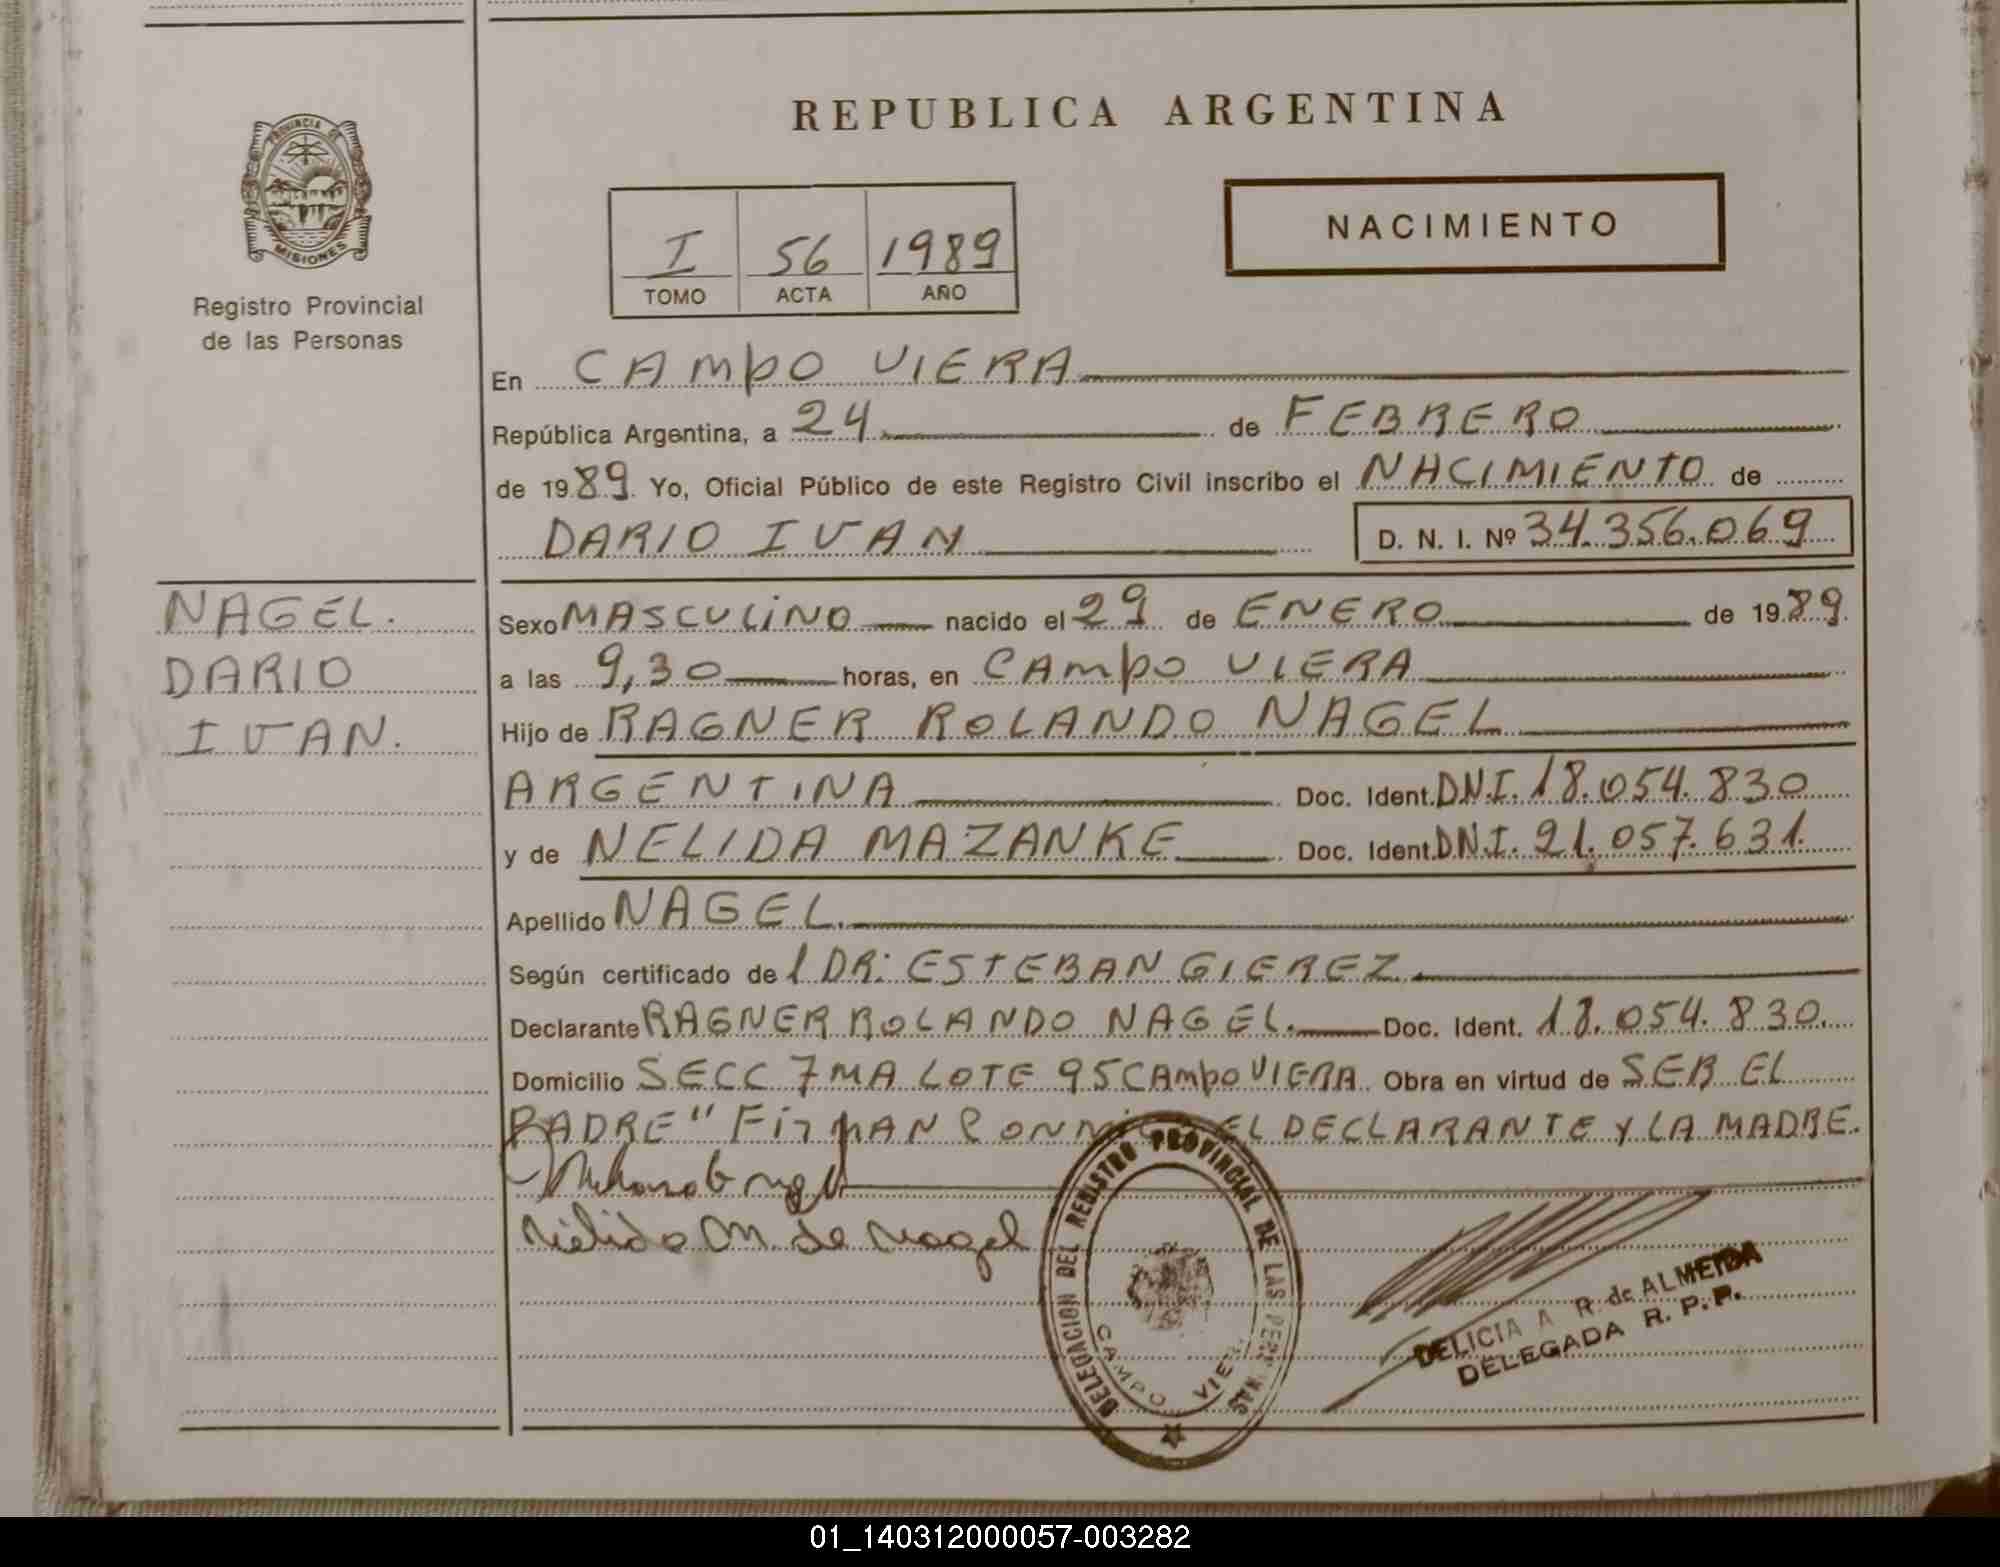 REPUBLICA ARGENTINA
PROVINCIA DE
MISIONES
Registro Provincial
de las Personas
NACIMIENTO
I 56 1989
TOMO ACTA AÑO
En CAMPO VIERA
República Argentina, a 24 de FEBRERO
de 1989. Yo, Oficial Público de este Registro Civil inscribo el NACIMIENTO de
DARIO IVAN D. N. I. Nº 34.356.069
NAGEL.
DARIO
IVAN.
Sexo MASCULINO nacido el 29 de ENERO de 1989.
a las 9,30 horas, en CAMPO VIERA
Hijo de RAGNER ROLANDO NAGEL
ARGENTINA Doc. Ident. DN.I. 18.054.830
y de NELIDA MAZANKE Doc. Ident. DN.I. 21.057.631.
Apellido NAGEL.
Según certificado de l DR: ESTEBAN GIEREZ
Declarante RAGNER ROLANDO NAGEL. Doc. Ident. 18.054.830.
Domicilio SECC 7MA LOTE 95 CAMPO VIERA Obra en virtud de SER EL
PADRE" FIRMAN CONMIGO EL DECLARANTE Y LA MADRE.
Nélida M. de Nagel
DELEGACION DEL REGISTRO PROVINCIAL DE LAS PERSONAS
CAMPO VIERA
DELICIA A R de ALMEIDA
DELEGADA R. P. P.
01_140312000057-003282